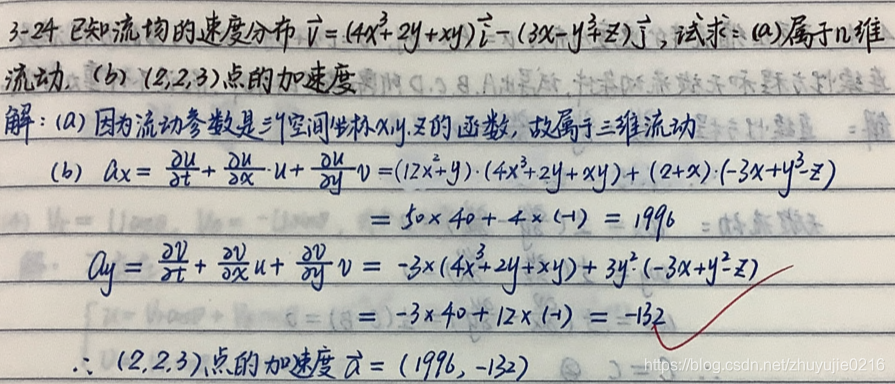 3-24 已知流场的速度分布 v⃗=(4x³+2y+xy)i⃗-(3x-y³+z)j⃗, 试求: (a) 属于几维
流动. (b) (2,2,3)点的加速度
解: (a) 因为流动参数是三个空间坐标x.y.z的函数, 故属于三维流动
(b) ax = ∂u/∂t + ∂u/∂x·u + ∂u/∂y v = (12x²+y)·(4x³+2y+xy) + (2+x)·(-3x+y³-z)
= 50×40 + 4×(-1) = 1996
ay = ∂v/∂t + ∂v/∂x u + ∂v/∂y v = -3×(4x³+2y+xy) + 3y²·(-3x+y²-z)
= -3×40 + 12×(-1) = -132
∴ (2,2,3)点的加速度 a⃗ = (1996, -132)
https://blog.csdn.net/zhuyujie0216